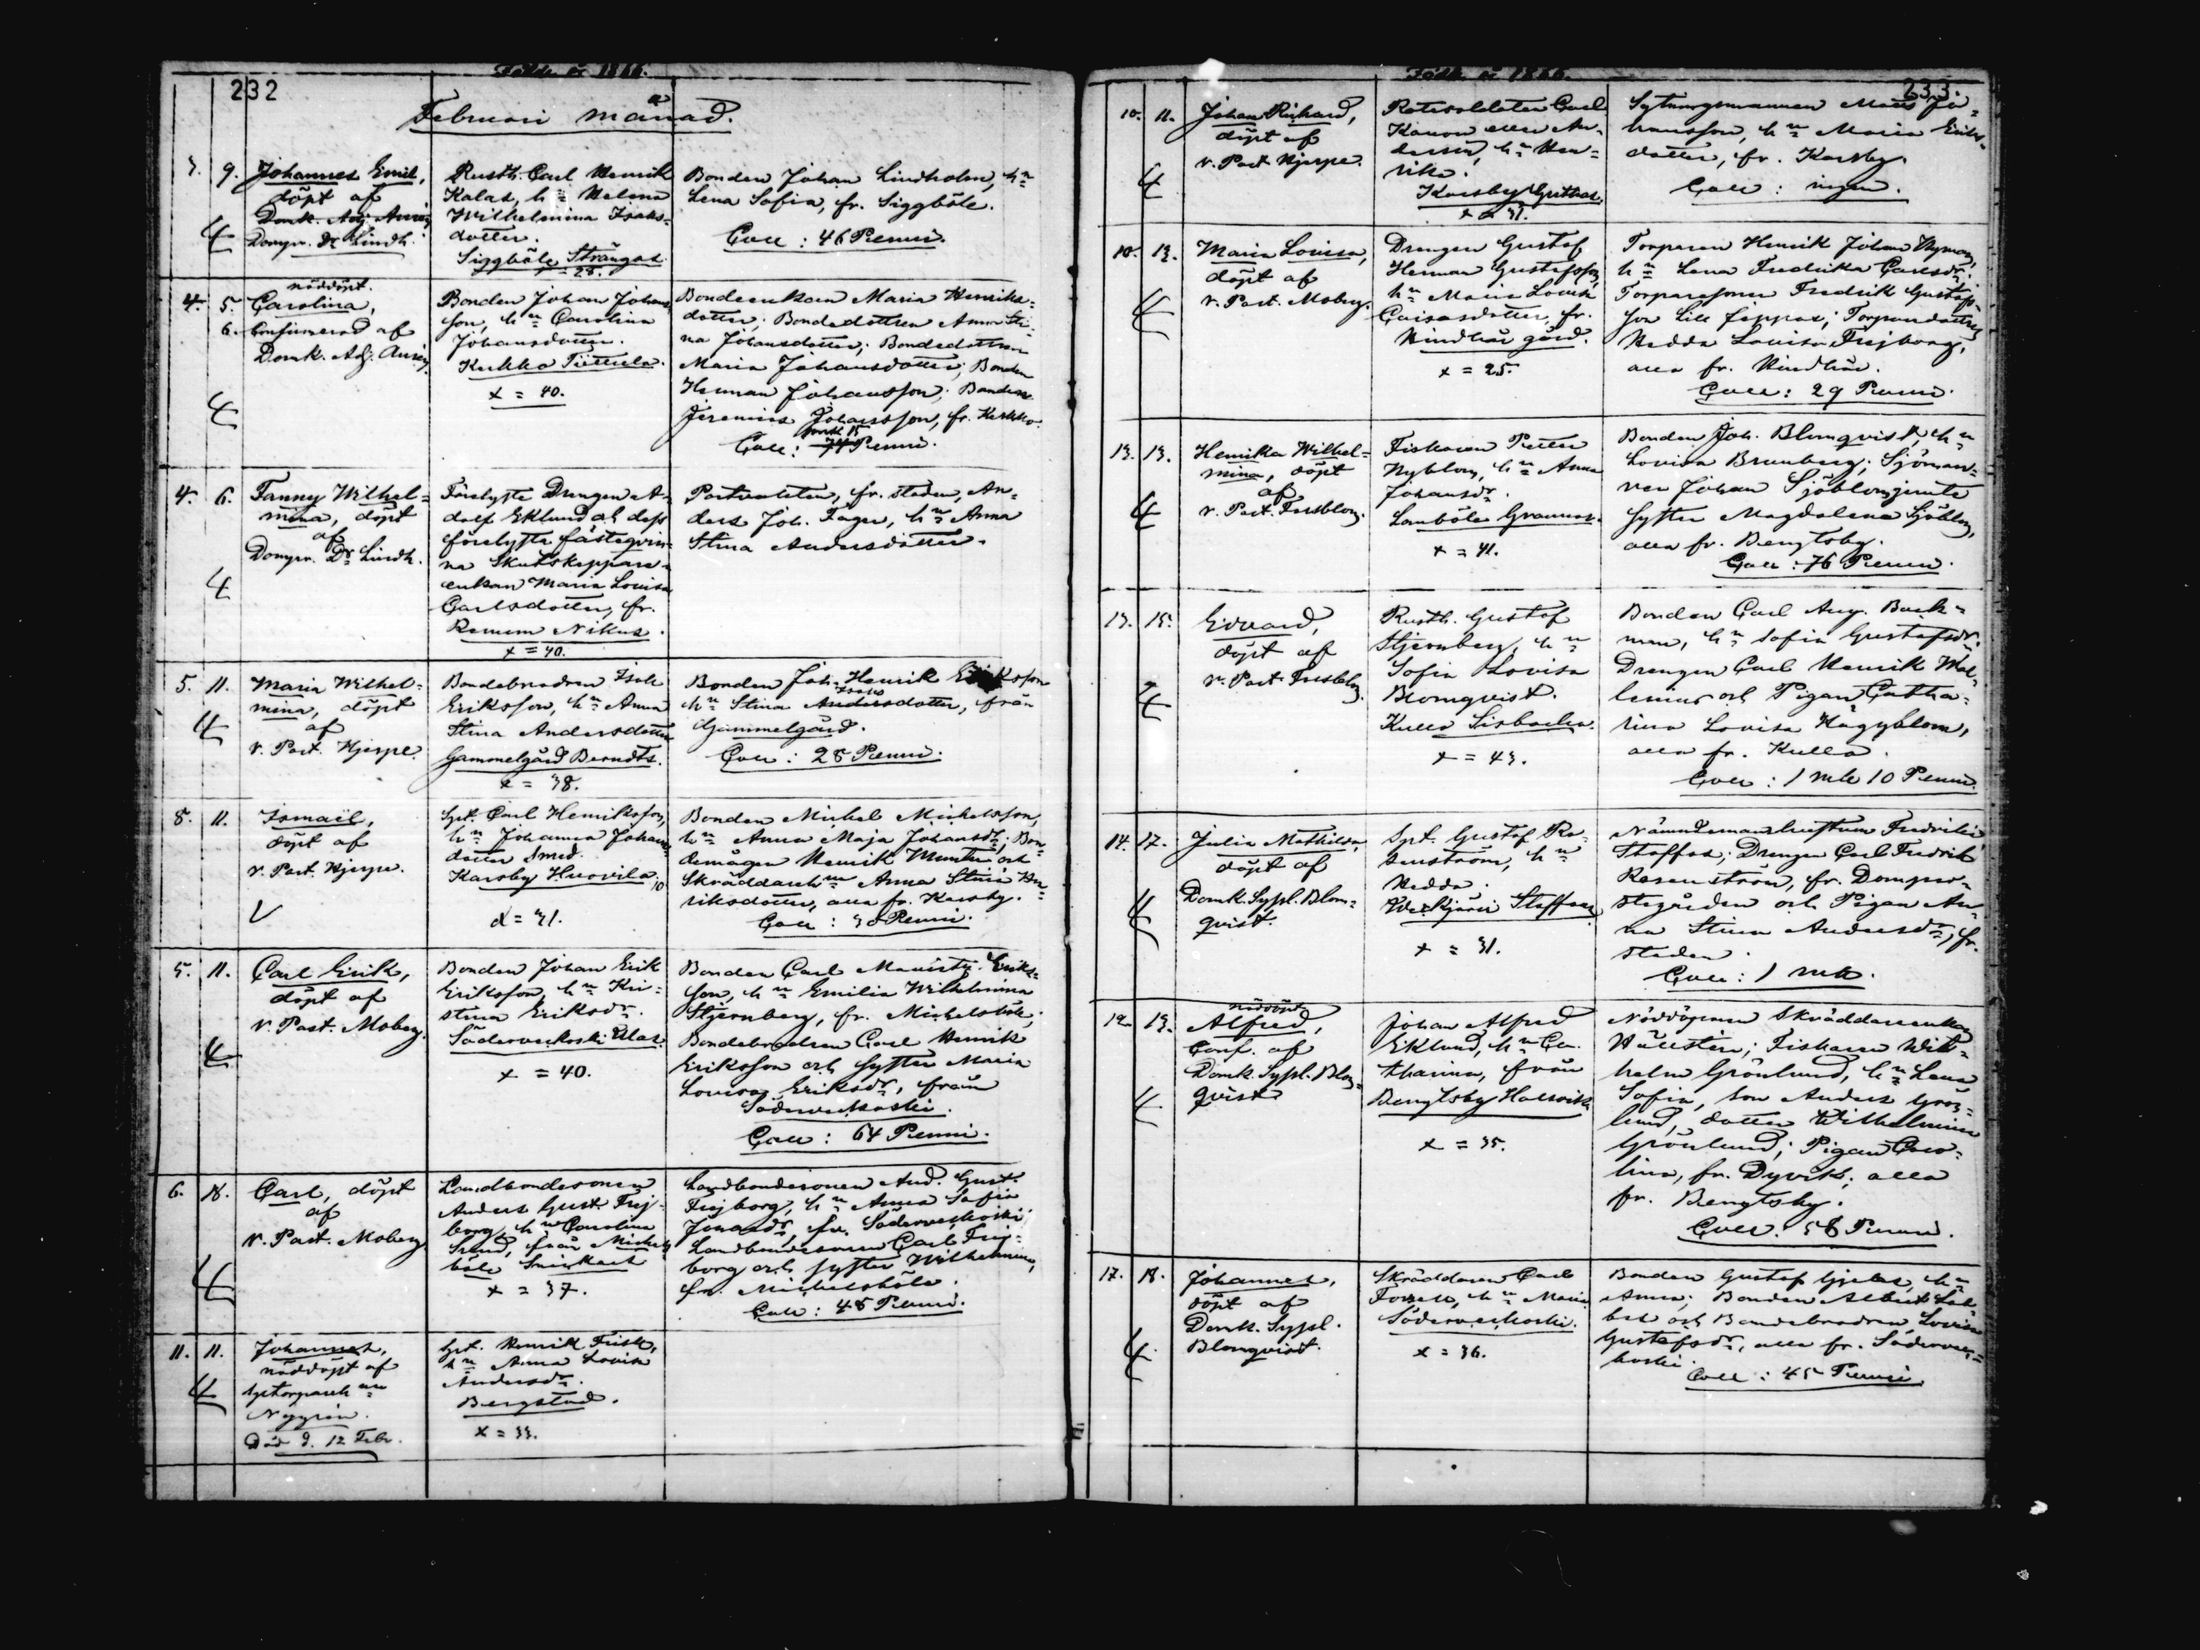 232
Födde år 1866.
Februari månad.
3. 9. Johannes Emil,
döpt af
Domk. Adj.
Dompr. Dr Lindh.
Rusth. Carl Henrik
Kalas, hu Helena
Wilhelmina Isaks-
dotter.
Siggböle Strångas
x = 28.
Bonden Johan Lindholm, hu
Lena Sofia, fr. Siggböle.
Coll: 46 Penni.
4. 5. nöddöpt.
Carolina,
6. Confirmerad af
Domk. Adj.
Bonden Johan Johans
son, hu Carolina
Johansdotter.
Kerkko
x = 40.
Bondeenkan Maria Henriks-
dotter; Bondedottren Anna Sti-
na Johansdotter; Bondedottren
Maria Johansdotter; Bonden
Herman Johansson; Bonden
Jeremias Johansson, fr. Kerkko.
Coll: Penni.
4. 6. Fanny Wilhel-
mina, döpt
af
Dompr. Dr Lindh.
Förelyste Drengen A-
dolf Eklund och dess
förelyste fästeqvin-
na Skutskeppare-
enkan Maria Lovisa
Carlsdotter, fr.
Nikus.
x = 40.
fr. staden, An-
ders Joh. Fager, hu Anna
Stina Andersdotter.
5. 11. Maria Wilhel-
mina, döpt
af
v. Past. Hjerpe.
Bondebrodren Isak
Eriksson, hu Anna
Stina Andersdotter
Gammelgård Berndts.
x = 38.
Bonden Joh. Henrik Eriksson
Isaks
hu Stina Andersdotter, från
Gammelgård.
Coll: 28 Penni.
8. 11. Ismaël,
döpt af
v. Past. Hjerpe.
Spt. Carl Henriksson,
hu Johanna Johans-
dotter Smed.
Karsby Huovila
x = 31.
Bonden Michel Michelsson,
hu Anna Maja Johansdr; Bon-
demågen Henrik och
Skräddareh:u Anna Stina Hen-
riksdotter, alla fr. Karsby.
Coll: 30 Penni.
5. 11. Carl Erik,
döpt af
v. Past. Moberg.
Bonden Johan Erik
Eriksson, hu Kri-
stina Eriksdr.
Söderveckoski Klas.
x = 40.
Bonden Carl Mauritz Eriks-
son, hu Emilia Wilhelmina
Stjernberg, fr. Michelsböle;
Bondebrodren Carl Henrik
Eriksson och syster Maria
Lovisa Eriksdr, från
Söderveckoski.
Coll: 64 Penni.
6. 18. Carl, döpt
af
v. Past. Moberg.
Landbondesonen
Anders Gust. Frej-
borg, hu Carolina
Smed, från Michels
böle
x = 37.
Landbondesonen And. Gust.
Frejborg, hu Anna Sofia
Jonasdr, fr. Söderveckoski;
Landbondesonen Carl Frej-
borg och syster Wilhelmina,
fr. Michelsböle.
Coll: 48 Penni.
11. 11. Johannes,
nöddöpt af
Nygrén.
Död d. 12 Febr.
Spt. Henrik Frisk,
hu Anna Lovisa
Andersdr.
Bergstad.
x = 33.
233.
Födde år 1866.
10. 11. Johan Richard,
döpt af
v. Past. Hjerpe.
Rotesoldaten Carl
Kanon eller An-
dersson, hu Hen-
rika.
Karsby
x = 31.
Sytningsmannen Mats Jo-
hansson, hu Maria Eriks-
dotter, fr. Karsby.
Coll: ingen.
10. 13. Maria Lovisa,
döpt af
v. Past. Moberg.
Drengen Gustaf
Herman Gustafsson,
hu Maria Lovisa
Caisasdotter, fr.
Hindhår gård.
x = 25.
Torparen Henrik Johan Nyman,
hu Lena Fredrika Carlsdr;
Torparesonen Fredrik Gustafs-
son Lill Seppas; Torparedottren
Hedda Lovisa Frejborg,
alla fr. Hindhår.
Coll: 29 Penni.
13. 13. Henrika Wilhel-
mina, döpt
af
v. Past. Forsblom.
Fiskaren Petter
Nyblom, hu Anna
Johansdr.
Sandböle Grannas.
x = 41.
Bonden Joh. Blomqvist, hu
Lovisa Brunberg; Sjöman-
nen Johan Sjöblom jemte
syster Magdalena Sjöblom,
alla fr. Bengtsby.
Coll: 76 Penni.
13. 15. Edvard,
döpt af
v. Past. Forsblom.
Rusth. Gustaf
Stjernberg, hu
Sofia Lovisa
Blomqvist.
Kullo Lisbacka.
x = 43.
Bonden Carl Aug. Back-
man, hu Sofia Gustafsdr;
Drengen Carl Henrik Wal-
lenius och Pigan Catha-
rina Lovisa Häggblom,
alla fr. Kullo.
Coll: 1 mk 10 Penni.
14. 17. Julia Mathilda,
döpt af
Domk. Syssl. Blom-
qvist.
Spt. Gustaf Ro-
senström, hu
Hedda.
Staffas
x = 31.
Nämndemanshustrun Fredrika
Staffas; Drengen Carl Fredrik
Rosenström, fr. Dompro-
stgården och Pigan An-
na Stina Andersdr, fr.
staden.
Coll: 1 mk.
12. 13. nöddöpt
Alfred,
Conf. af
Domk. Syssl. Blom-
qvist
Johan Alfred
Eklund, hu Ca-
tharina, från
Bengtsby Halsvik
x = 35.
Nöddöparen Skräddareenkan
Hällsten; Fiskaren Wil-
helm Grönlund, hu Lena
Sofia, son Anders Grön-
lund, dotter Wilhelmina
Grönlund; Pigan Caro-
lina, fr. Dyvik; alla
fr. Bengtsby.
Coll. 56 Penni.
17. 18. Johannes,
döpt af
Domk. Syssl.
Blomqvist.
Skräddaren Carl
Forsell, hu Maria
Söderveckoski.
x = 36.
Bonden Gustaf hu
Anna; Bonden Albert
och Bondebrodren Lovisa
Gustafsdr, alla fr. Södervec-
koski.
Coll: 45 Penni.